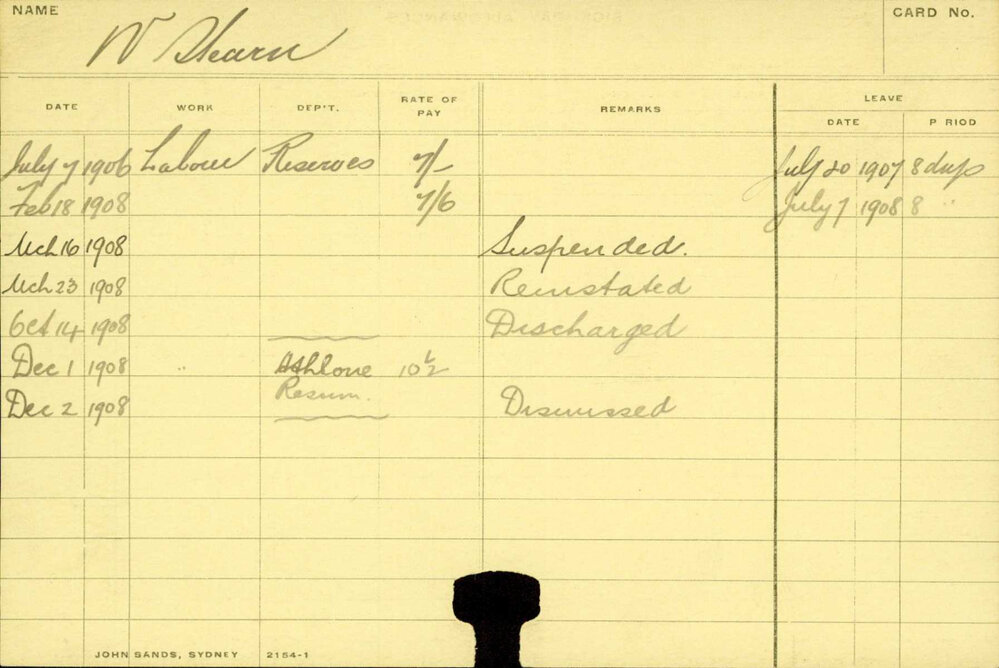 NAME
CARD No.
W Hearn
DATE WORK DEP'T. RATE OF PAY REMARKS LEAVE
DATE P RIOD
July 7 1906 Labour Reserves 7/- July 20 1907 8 days
Feb 18 1908 7/6 July 7 1908 8 "
Mch 16 1908 Suspended.
Mch 23 1908 Reinstated
Oct 14 1908 Discharged
Dec 1 1908 " Athlone 10½
Resum.
Dec 2 1908 Dismissed
JOHN SANDS, SYDNEY 2154-1